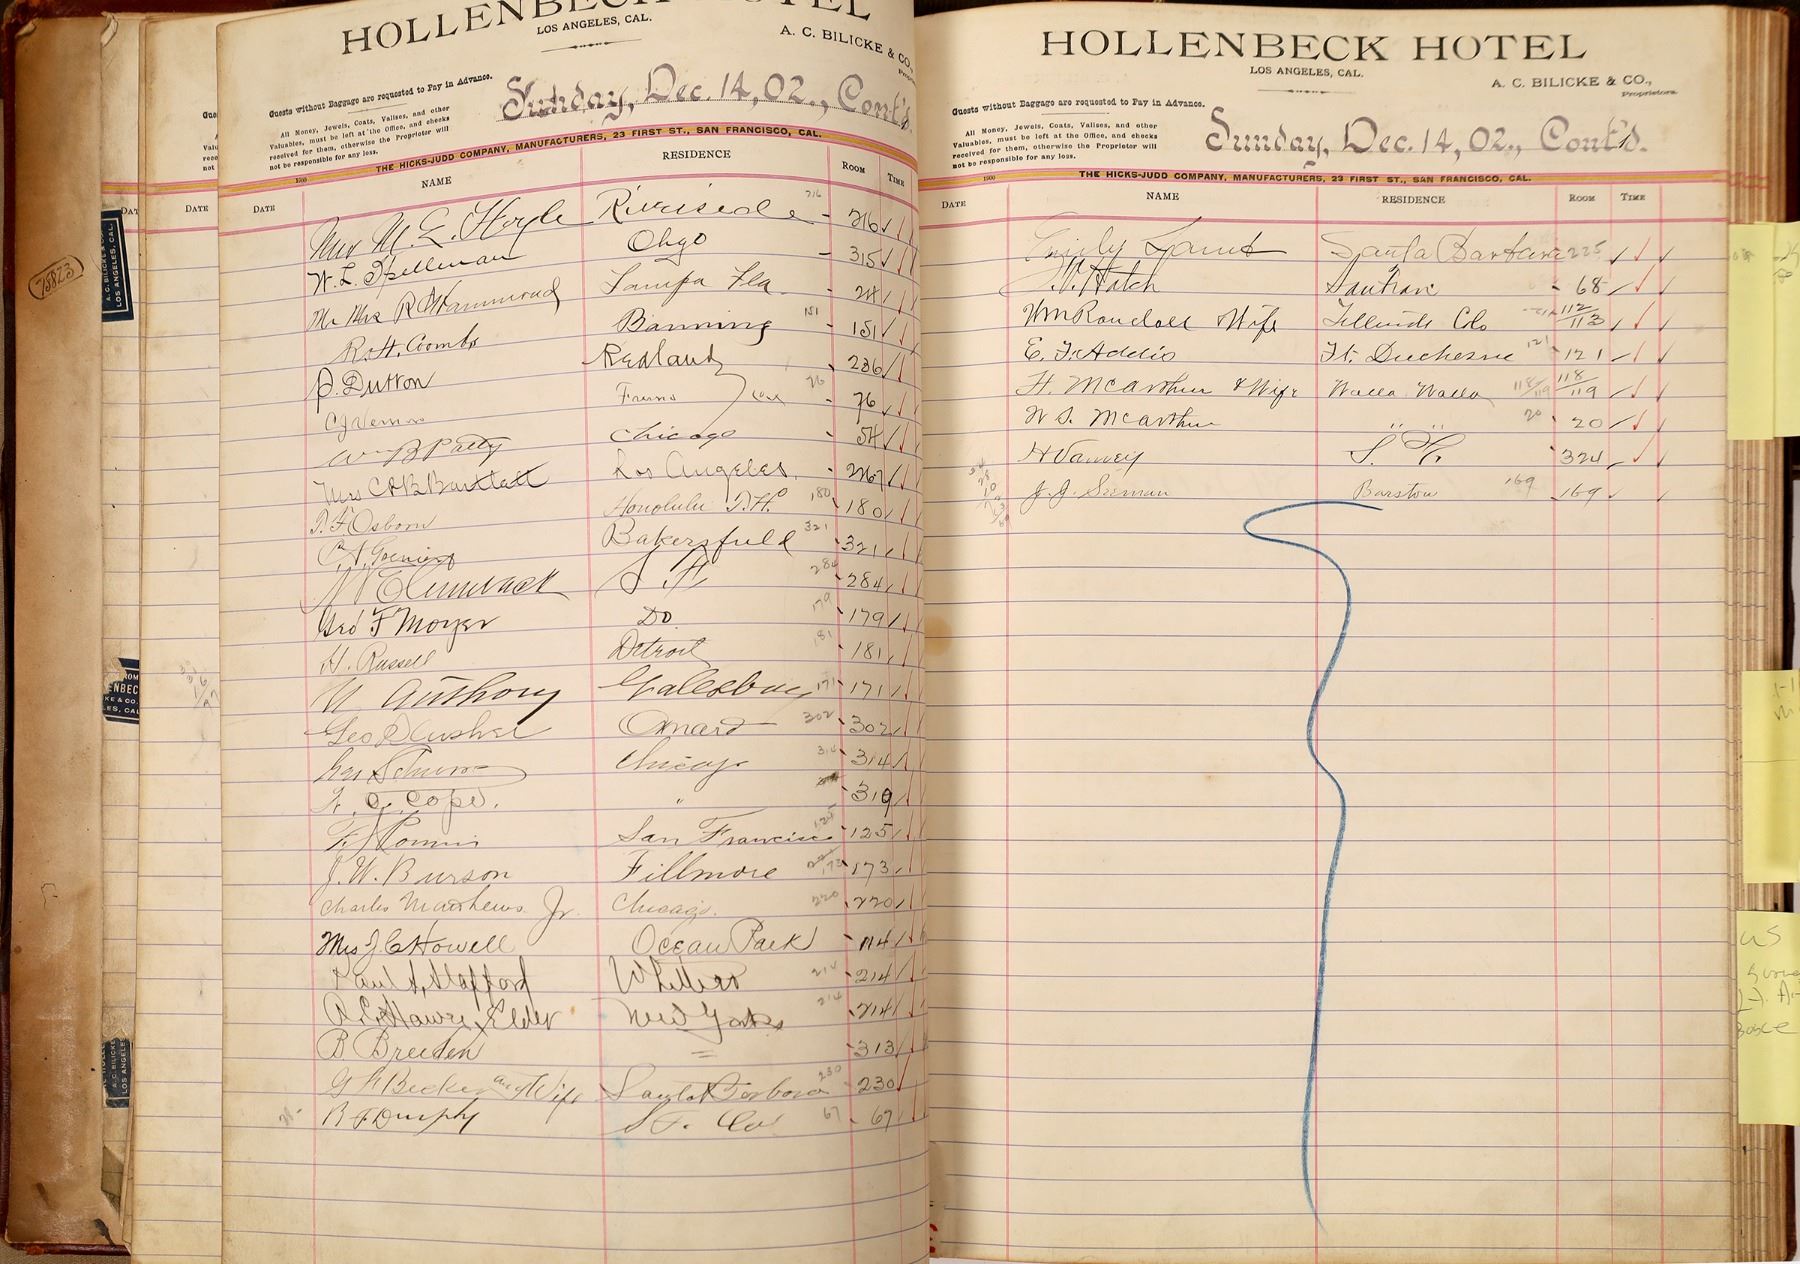 HOLLENBECK HOTEL
LOS ANGELES, CAL.
A. C. BILICKE & CO.,
Guests without Baggage are requested to Pay in Advance.
All Money, Jewels, Coats, Valises, and other
Valuables, must be left at the Office, and checks
received for them, otherwise the Proprietor will
not be responsible for any loss.
Sunday, Dec. 14, 02., Cont'd.
THE HICKS-JUDD COMPANY, MANUFACTURERS, 23 FIRST ST., SAN FRANCISCO, CAL.
1900
DATE NAME RESIDENCE ROOM TIME
Mrs M. E. Hoyle Riverside 216 216
W. L. Spellman Chgo 315
Mr Mrs R Hammond Tampa Fla.
R. H. Coombs Banning 151 151
Dutton Redlands 236
C J Vernon 76 76
Chicago 54
Mrs C B Bartlett Los Angeles 267
Osborn Honolulu T.H. 180 180
Bakersfield 321 321
S F 284 284
Geo F Moyer Do. 179 179
H. Russell Detroit 181 181
Anthony Galesburg 171 171
Geo 302 302
Chicago 314 314
Cope. " 319
San Francisco 125 125
J. W. Burson Fillmore 173 173
Charles Matthews Jr. Chicago. 220 220
Mrs J. C Howell Ocean Park 114
Paul Stafford Whittier 214 214
Elder New York 214 214
B Breeden = 313
Becker and Wife Santa Barbara 230 230
B F Dunphy S F. Cal 67 67
75823
HOLLENBECK HOTEL
LOS ANGELES, CAL.
A. C. BILICKE & CO.,
Proprietors.
Guests without Baggage are requested to Pay in Advance.
All Money, Jewels, Coats, Valises, and other
Valuables, must be left at the Office, and checks
received for them, otherwise the Proprietor will
not be responsible for any loss.
Sunday, Dec. 14, 02., Cont'd.
THE HICKS-JUDD COMPANY, MANUFACTURERS, 23 FIRST ST., SAN FRANCISCO, CAL.
1900
DATE NAME RESIDENCE ROOM TIME
Emily Lamb Santa Barbara 225
Hatch San Fran 68
Wm Randall & Wife Telluride Colo 112/113
E. F. Addis Ft. Duchesne 121 121
H. McArthur & Wife Walla Walla 118/119 118/119
W S. McArthur " " 20 20
H Varney S. F. 324
J. J. Barstow 169 169